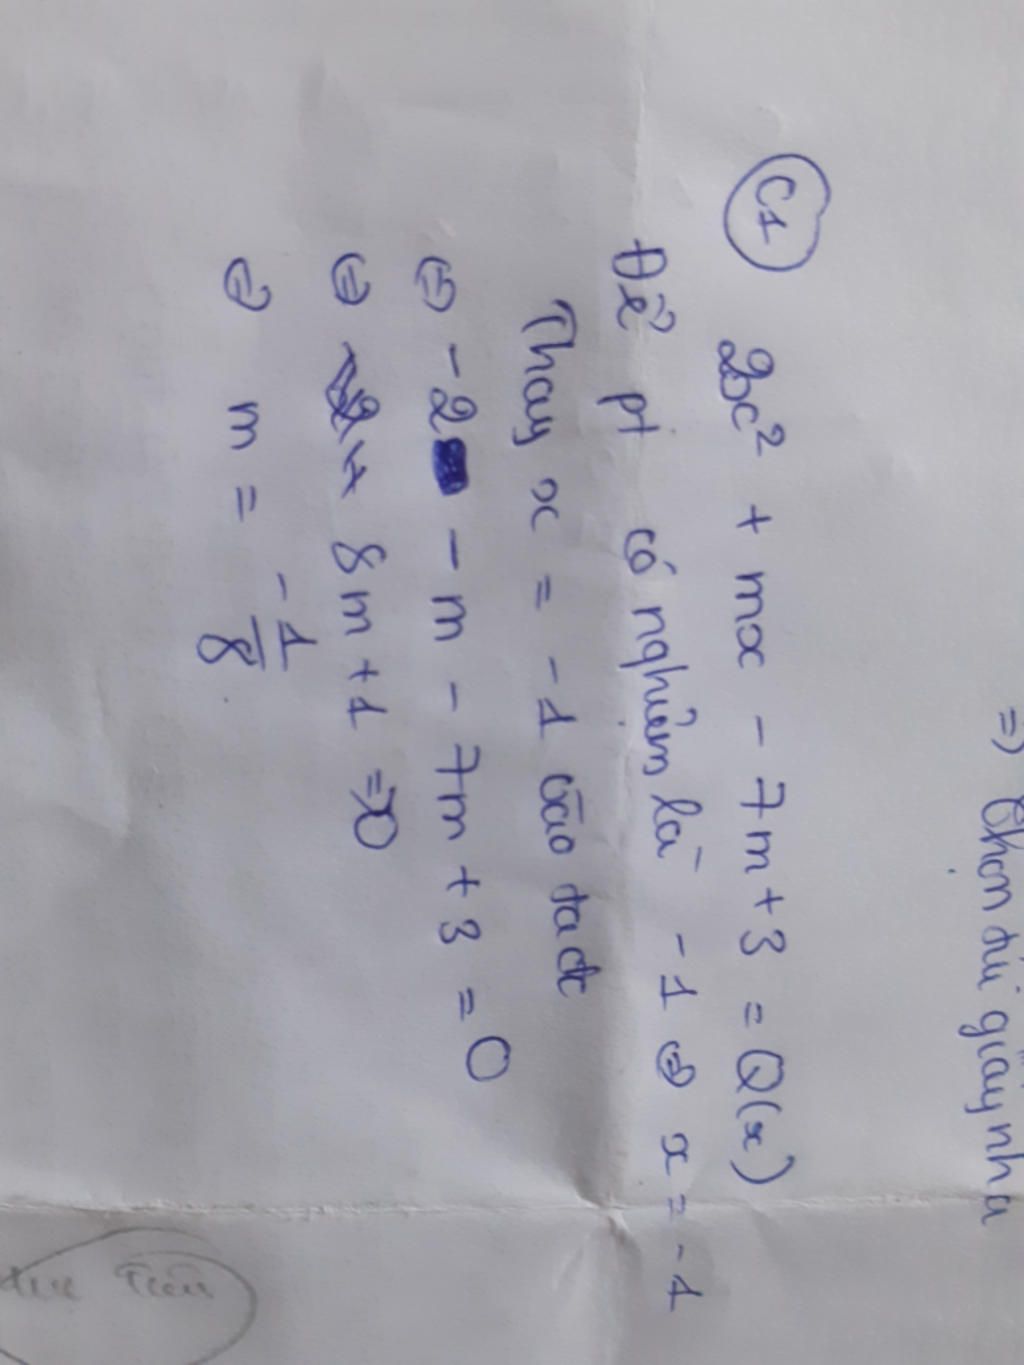 =) Chọn túi giấy nha
C1
2x² + mx - 7m + 3 = Q(x)
Để pt có nghiệm là -1 ⇔ x = -1
Thay x = -1 vào ta đc
⇔ -2 - m - 7m + 3 = 0
⇔ 8m + 1 = 0
⇔ m = -1/8